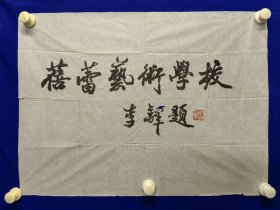 蓓蕾藝術學校
李鐸題